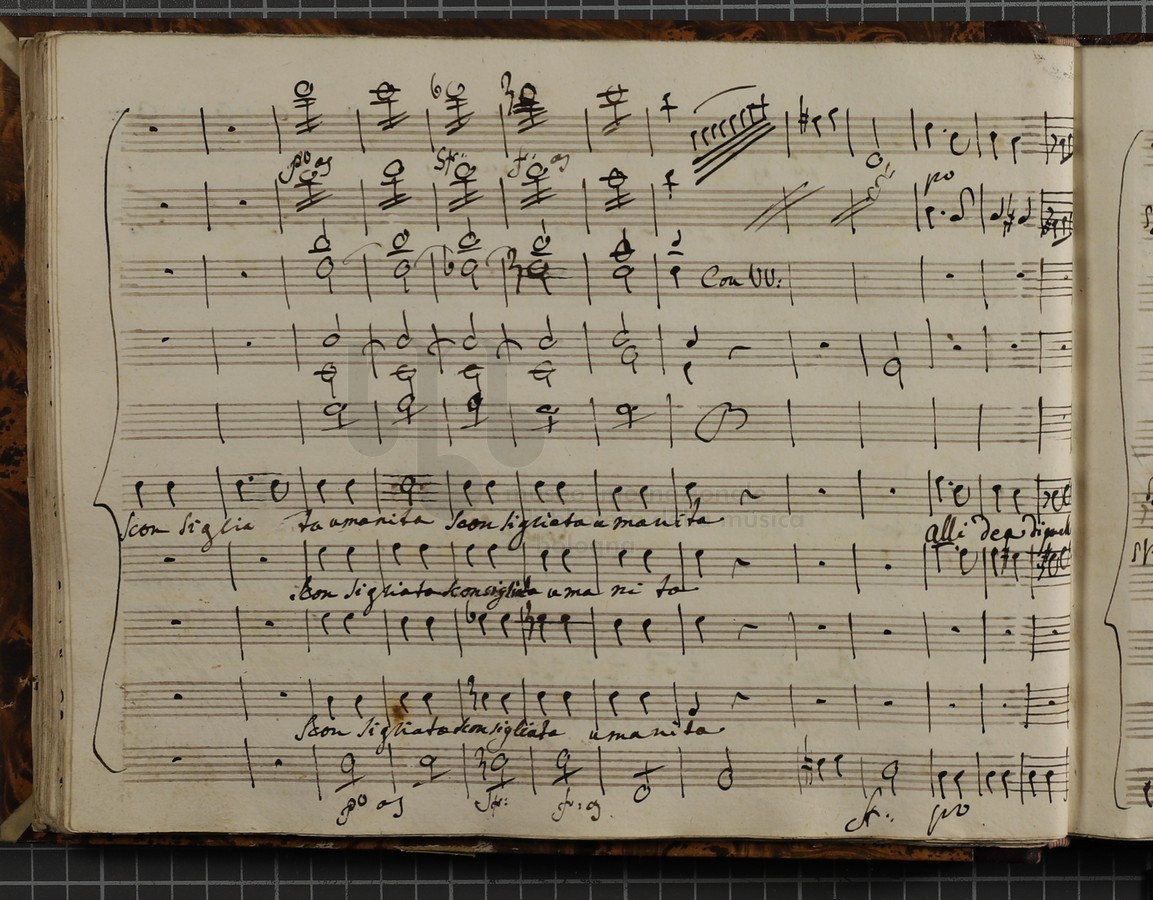 po as Str: fr: as
po
Con VV:
Scon siglia ta umanita Sconsigliata umanita
alli dea
Scon sigliata sconsigliata uma ni ta
Scon sigliata sconsigliata umanita
po as Str: fr: as
po